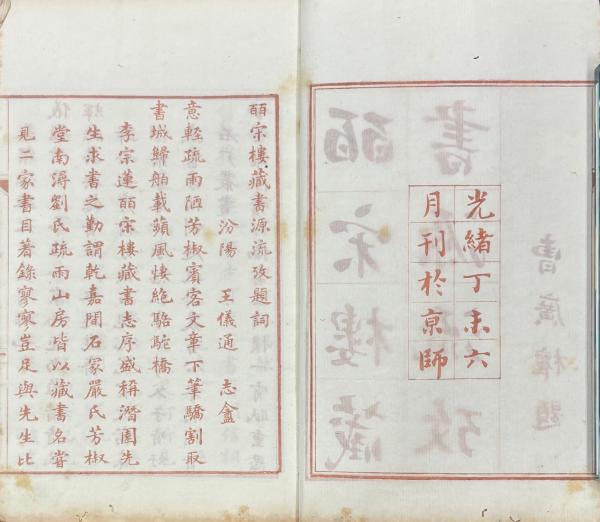 光緒丁未六
月刊於京師
皕宋樓藏書源流攷題詞
汾陽 王儀通 志盦
意輕疏雨陋芳椒賓客文章下筆驕割取
書城歸舶載蘋風悽絶駱駝橋
李宗蓮皕宋樓藏書志序盛稱潛園先
生求書之勤謂乾嘉間石冢嚴氏芳椒
堂南潯劉氏疏雨山房皆以藏書名嘗
見二家書目著錄寥寥豈足與先生比